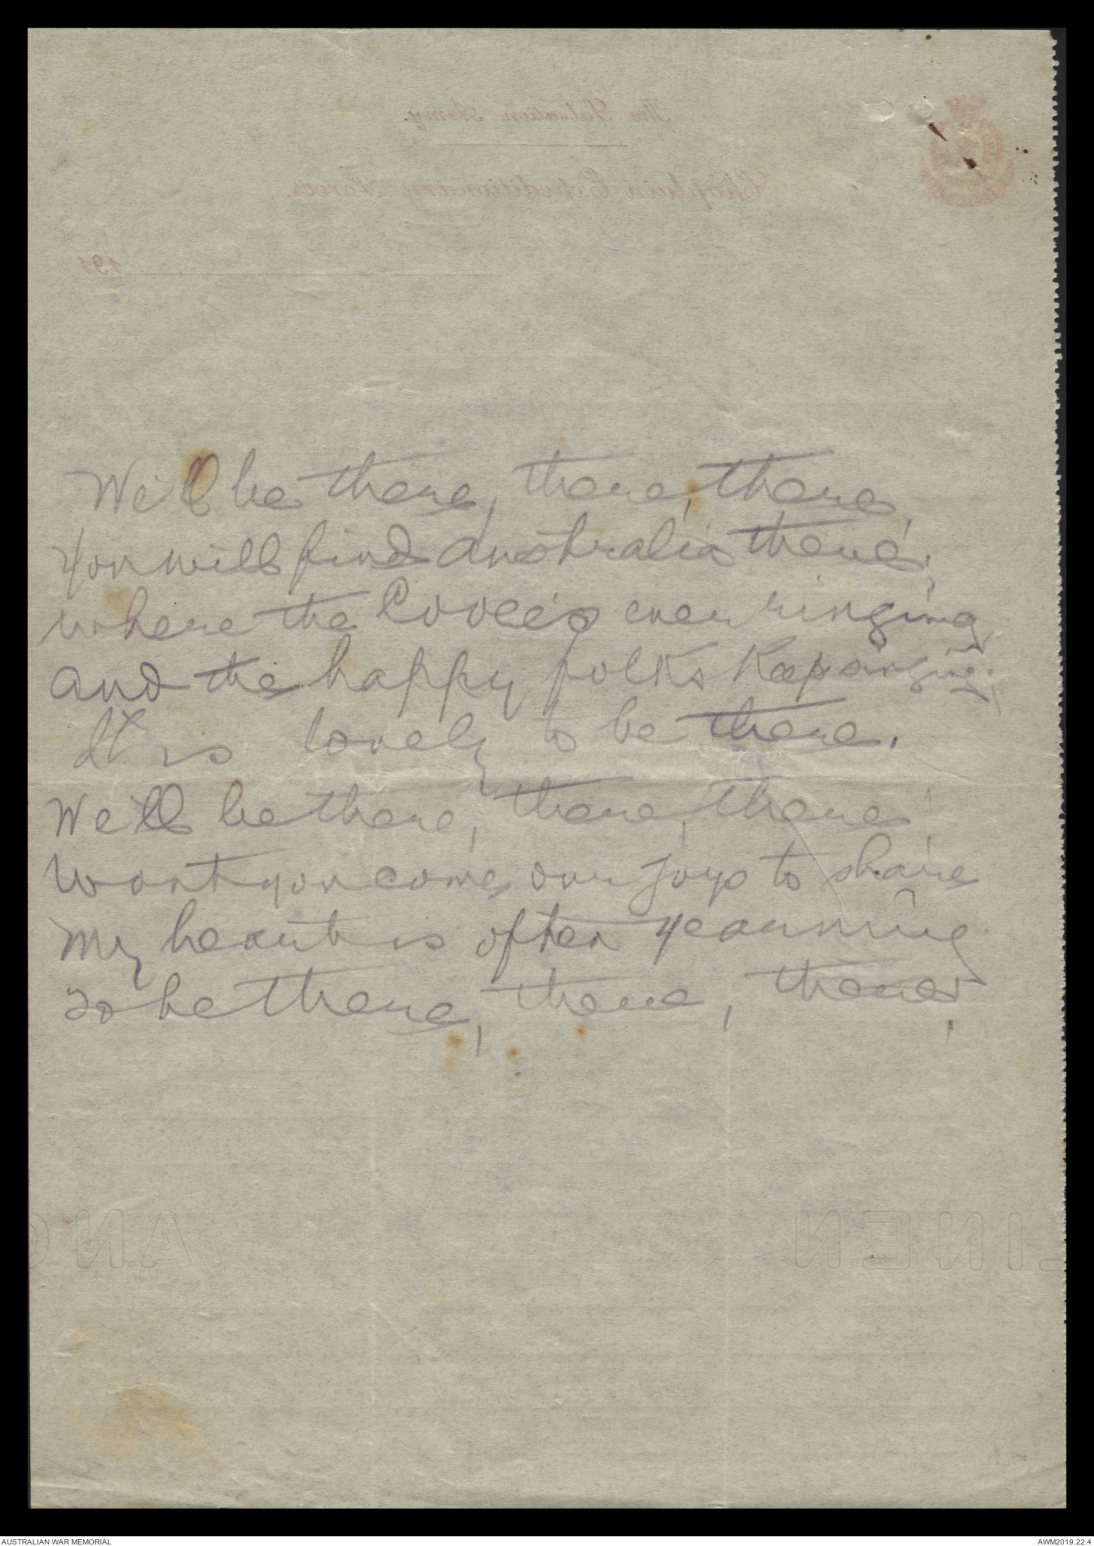 The Salvation Army.
Chaplain Expeditionary Forces.
191
We'll be there, there, there,
You will find Australia there,
where the Cooee's ever ringing
and the happy folks Keep singing;
It is lovely to be there.
We'll be there, there, there,
Wont you come our joys to share
My heart is often yearning
To be there, there, there,
LINEN
AUSTRALIAN WAR MEMORIAL
AWM2019.22.4